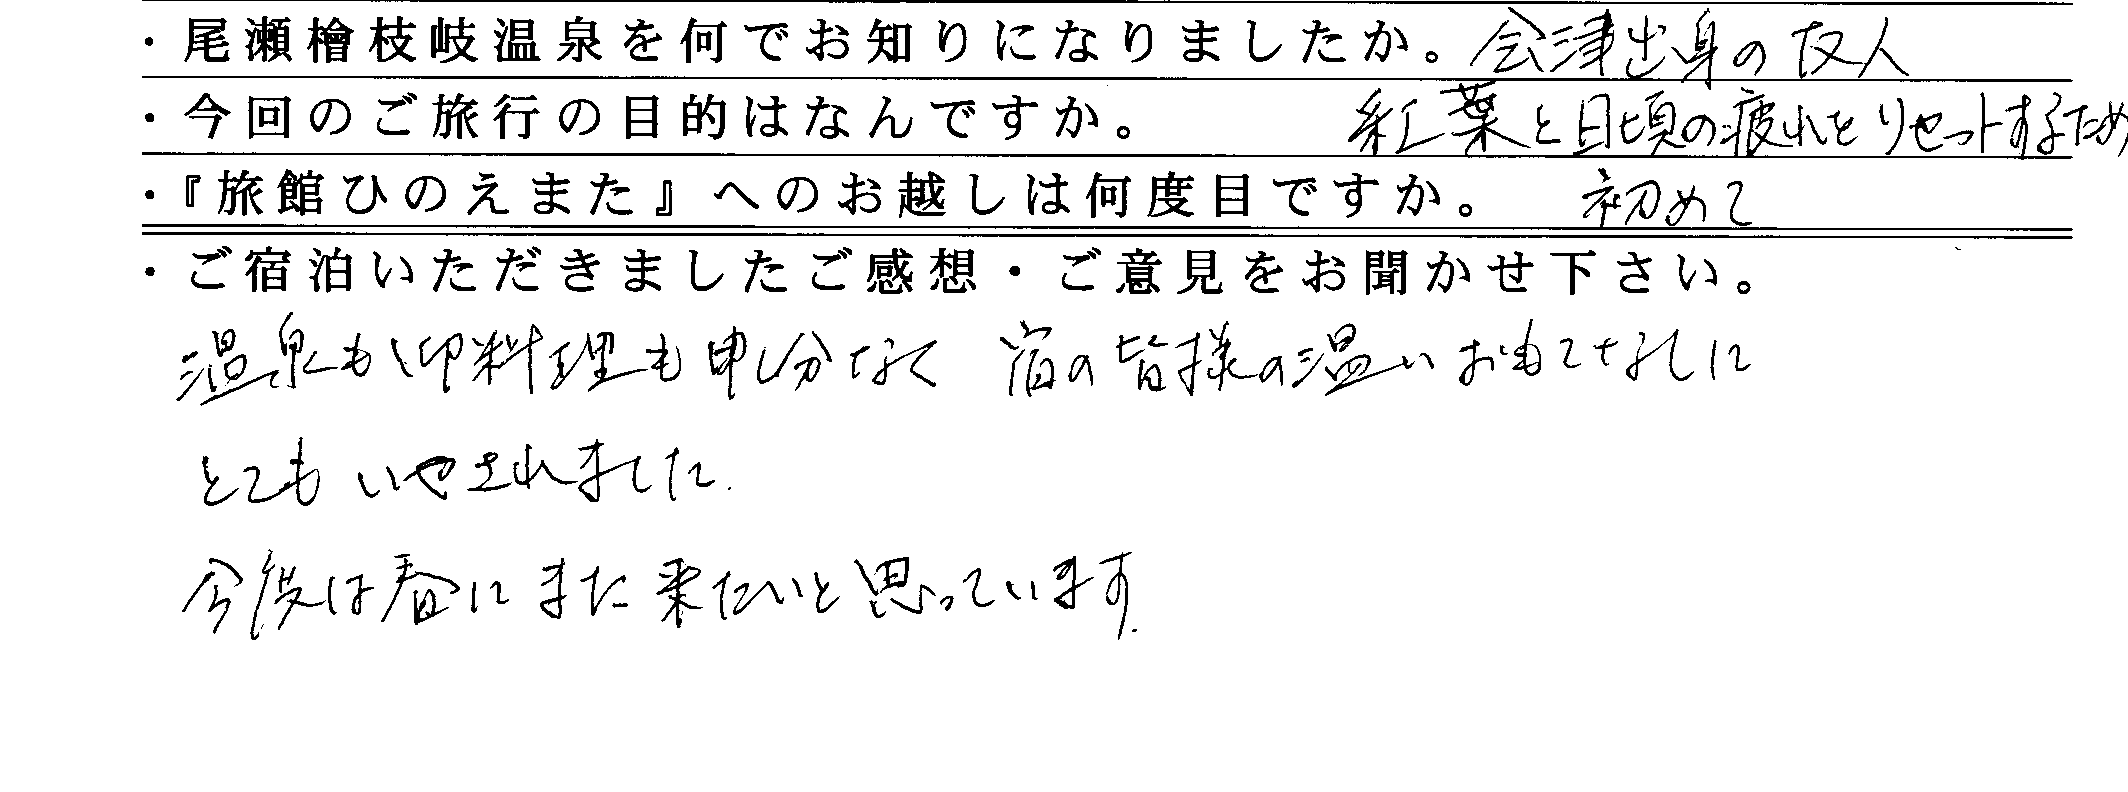 ・尾瀬檜枝岐温泉を何でお知りになりましたか。会津出身の友人
・今回のご旅行の目的はなんですか。 紅葉と日頃の疲れをリセットするため
・『旅館ひのえまた』へのお越しは何度目ですか。 初めて
・ご宿泊いただきましたご感想・ご意見をお聞かせ下さい。
温泉もお料理も申し分なく 宿の皆様の温いおもてなしに
とてもいやされました.
今度は春にまた来たいと思っています.